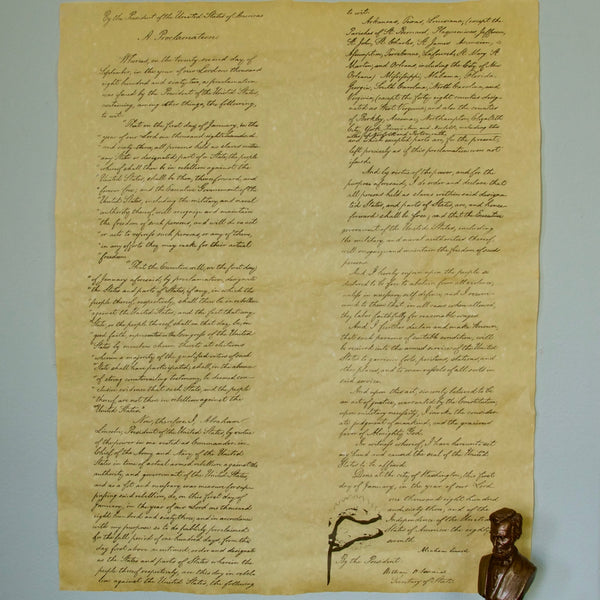 By the President of the United States of America:
A Proclamation.
Whereas, on the twenty second day of
September, in the year of our Lord one thousand
eight hundred and sixty two, a proclamation
was issued by the President of the United States,
containing, among other things, the following,
to wit:
"That on the first day of January, in the
"year of our Lord one thousand eight hundred
"and sixty three, all persons held as slaves within
"any State or designated part of a State, the people
"whereof shall then be in rebellion against the
"United States, shall be then, thenceforward, and
"forever free; and the Executive Government of the
"United States, including the military and naval
"authority thereof, will recognize and maintain
"the freedom of such persons, and will do no act
"or acts to repress such persons, or any of them,
"in any efforts they may make for their actual
"freedom.
"That the Executive will, on the first day
"of January aforesaid, by proclamation, designate
"the States and parts of States, if any, in which the
"people thereof, respectively, shall then be in rebellion
"against the United States; and the fact that any
"State, or the people thereof, shall on that day be, in
"good faith, represented in the Congress of the United
"States by members chosen thereto at elections
"wherein a majority of the qualified voters of such
"State shall have participated, shall, in the absence
"of strong countervailing testimony, be deemed con-
"clusive evidence that such State, and the people
"thereof, are not then in rebellion against the
"United States."
Now, therefore I, Abraham
Lincoln, President of the United States, by virtue
of the power in me vested as Commander-in-
Chief of the Army and Navy of the United
States in time of actual armed rebellion against the
authority and government of the United States,
and as a fit and necessary war measure for sup-
pressing said rebellion, do, on this first day of
January, in the year of our Lord one thousand
eight hundred and sixty three, and in accordance
with my purpose so to do publicly proclaimed
for the full period of one hundred days, from the
day first above mentioned, order and designate
as the States and parts of States wherein the
people thereof respectively, are this day in rebel-
lion against the United States, the following,
to wit:
Arkansas, Texas, Louisiana, (except the
Parishes of St. Bernard, Plaquemines, Jefferson,
St. John, St. Charles, St. James, Ascension,
Assumption, Terrebonne, Lafourche, St. Mary, St.
Martin, and Orleans, including the City of New
Orleans) Mississippi, Alabama, Florida,
Georgia, South Carolina, North Carolina, and
Virginia, (except the forty eight counties desig-
nated as West Virginia, and also the counties
of Berkley, Accomac, Northampton, Elizabeth
City, York, Princess Ann, and Norfolk, including the
cities of Norfolk and Portsmouth
and which excepted parts are, for the present,
left precisely as if this proclamation were not
issued.
And by virtue of the power, and for the
purpose aforesaid, I do order and declare that
all persons held as slaves within said designa-
ted States, and parts of States, are, and hence-
forward shall be free; and that the Executive
government of the United States, including
the military and naval authorities thereof,
will recognize and maintain the freedom of said
persons.
And I hereby enjoin upon the people so
declared to be free to abstain from all violence,
unless in necessary self-defence; and I recommend
to them that, in all cases when allowed,
they labor faithfully for reasonable wages.
And I further declare and make known,
that such persons of suitable condition, will
be received into the armed service of the United
States to garrison forts, positions, stations, and
other places, and to man vessels of all sorts in
said service.
And upon this act, sincerely believed to be
an act of justice, warranted by the Constitution,
upon military necessity, I invoke the consider-
ate judgment of mankind, and the gracious
favor of Almighty God.
In witness whereof, I have hereunto set
my hand and caused the seal of the United
States to be affixed.
Done at the city of Washington, this first
day of January, in the year of our Lord
one thousand eight hundred
and sixty three, and of the
Independence of the United
States of America the eighty-
seventh.
By the President:
Secretary of State